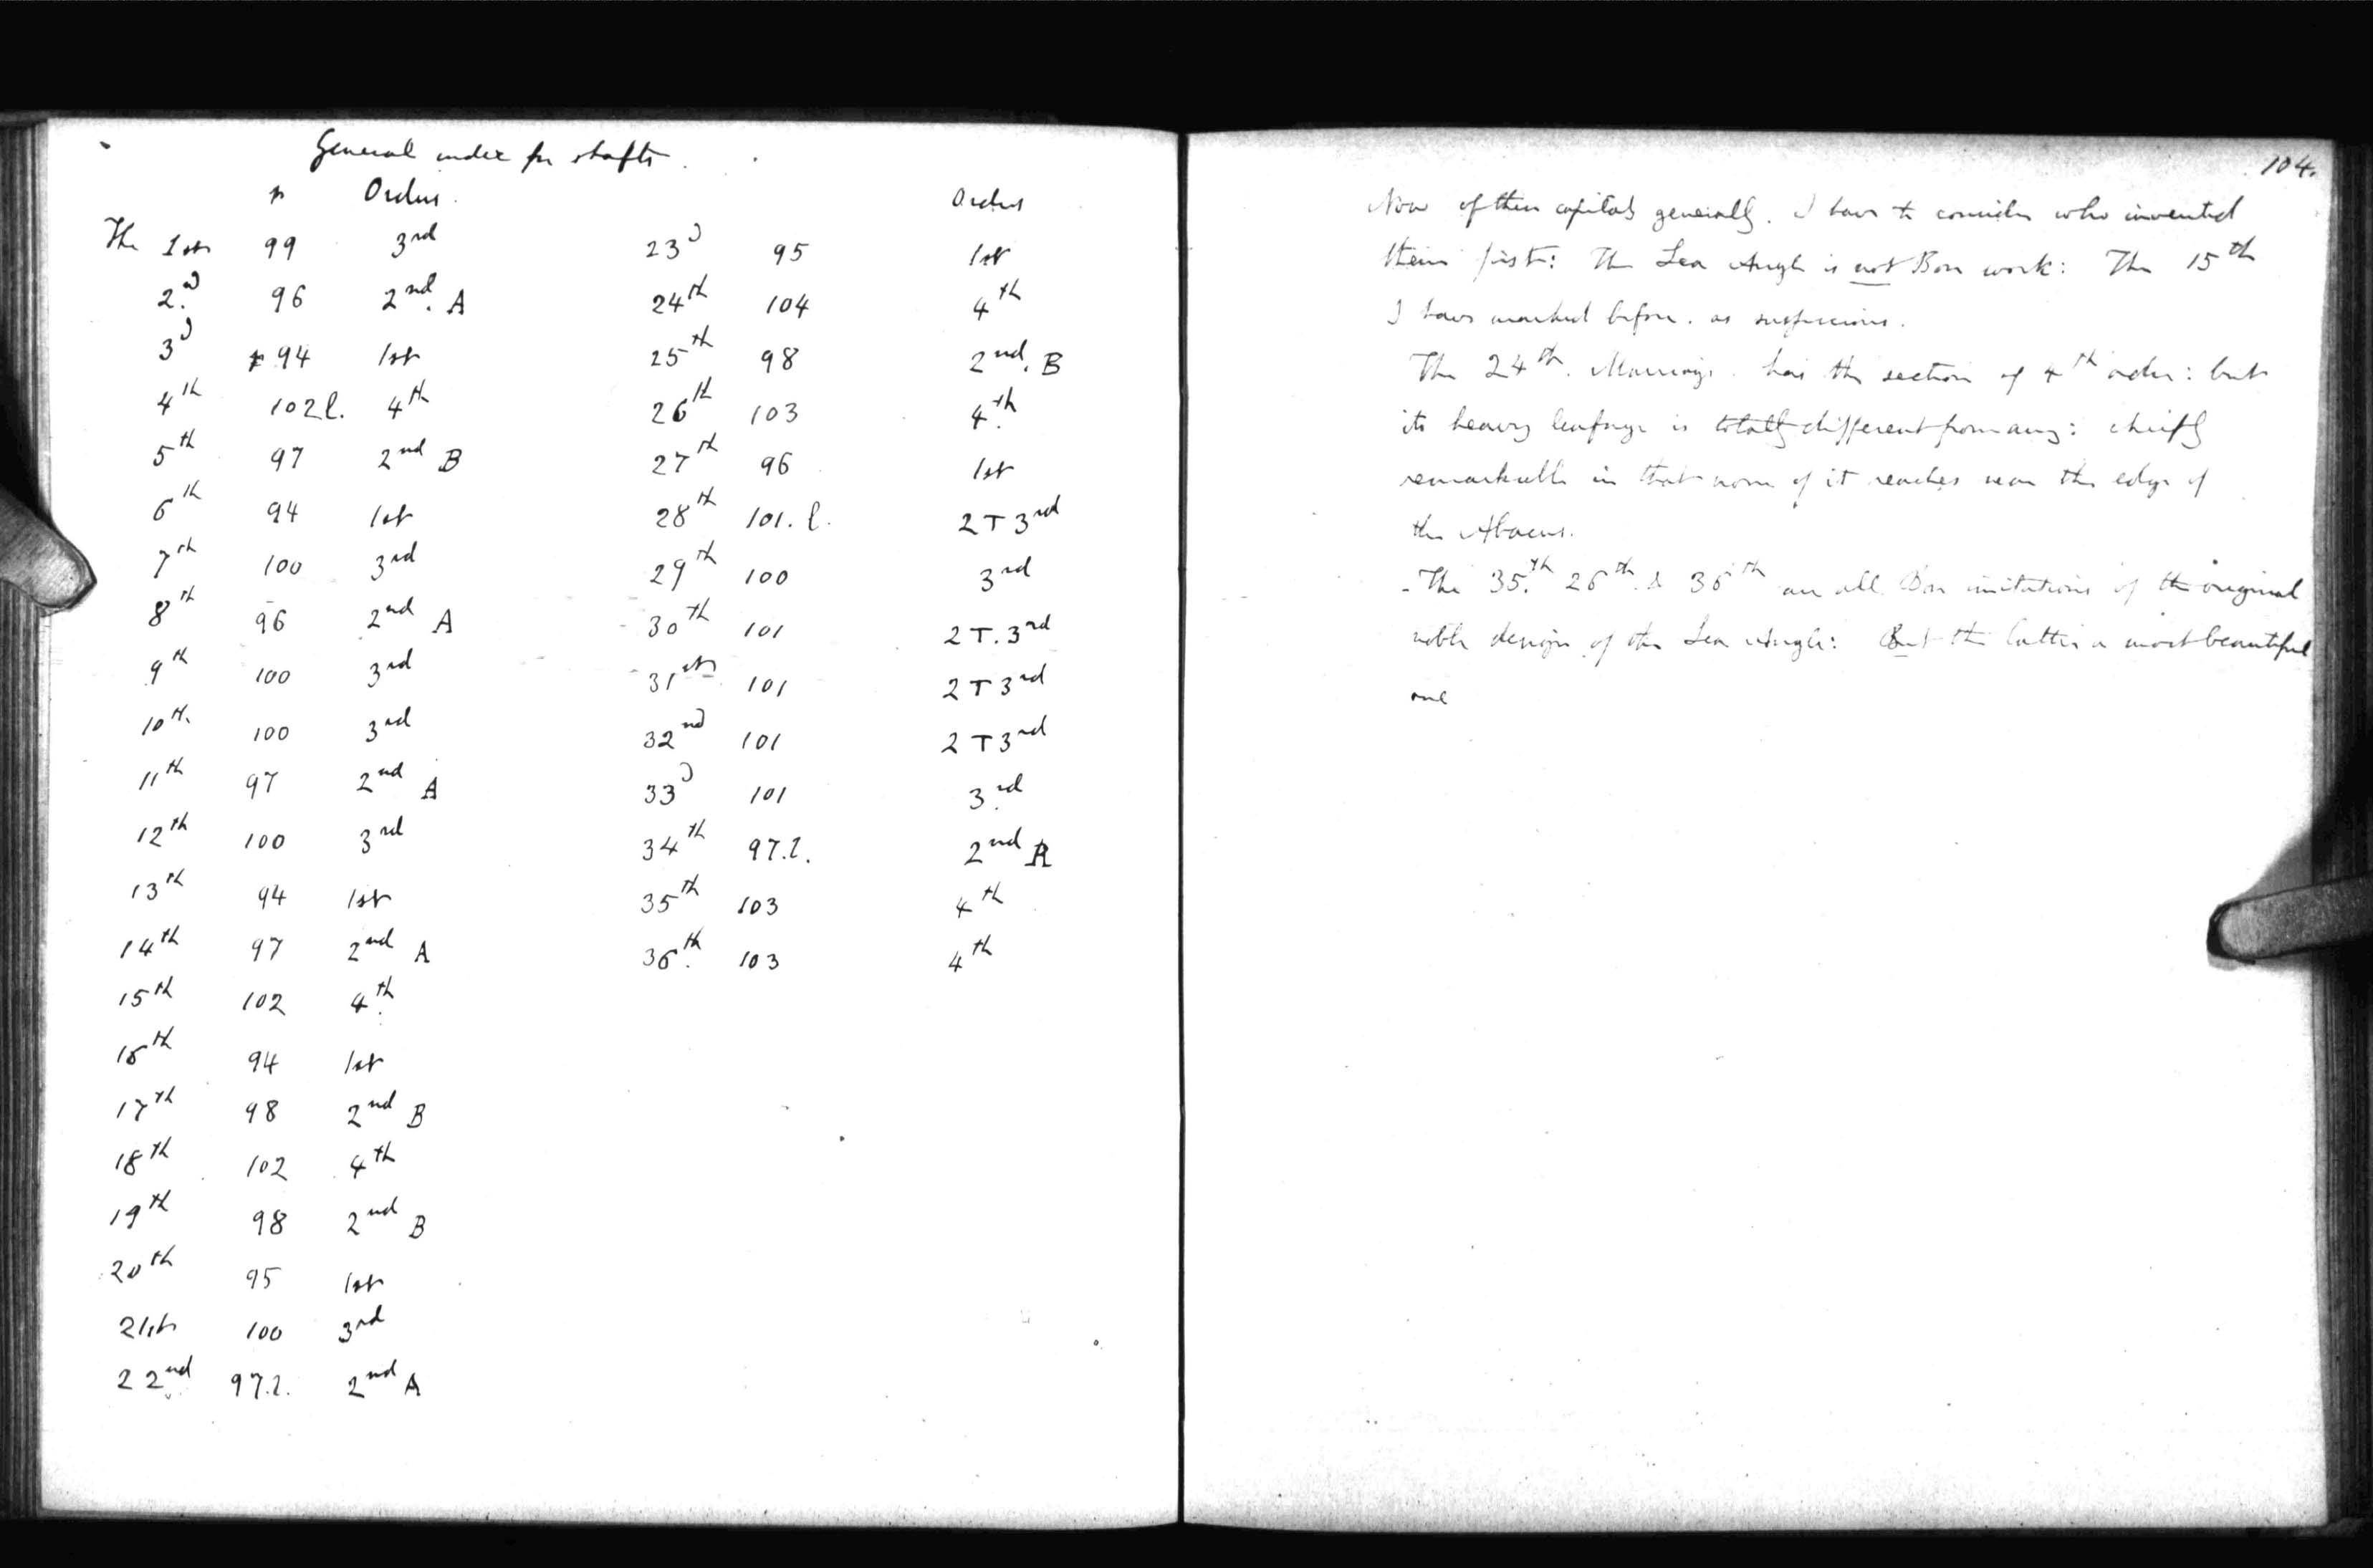 General index for shafts.
p Orders.
The 1st 99 3rd
2.d 96 2nd. A
3d 94 1st
4th 102 l. 4th
5th 97 2nd B
6th 94 1st
7th 100 3rd
8th 96 2nd A
9th 100 3rd
10th. 100 3rd
11th 97 2nd A
12th 100 3rd
13th 94 1st
14th 97 2nd A
15th 102 4th
16th 94 1st
17th 98 2nd B
18th 102 4th
19th 98 2nd B
20th 95 1st
21st 100 3rd
22nd 97.l. 2nd A
Orders
23d 95 1st
24th 104 4th
25th 98 2nd. B
26th 103 4th
27th 96 1st
28th 101. l. 2 T 3rd
29th 100 3rd
30th 101 2 T. 3rd
31st 101 2 T 3rd
32nd 101 2 T 3rd
33d 101 3rd
34th 97.l. 2nd
35th 103 4th
36th. 103 4th
104.
Now of these capitals generally. I have to consider who invented
them first: The Sea Angle is not Bon work: The 15th
I have marked before. as suspicious.
The 24th. Marriage. has the section of 4th order: but
its heavy leafage is totally different from any: chiefly
remarkable in that none of it reaches near the edge of
the Abacus.
- The 35.th 26th. & 36th are all Bon imitations of the original
noble design of the Sea Angle: But the latter a most beautiful
one